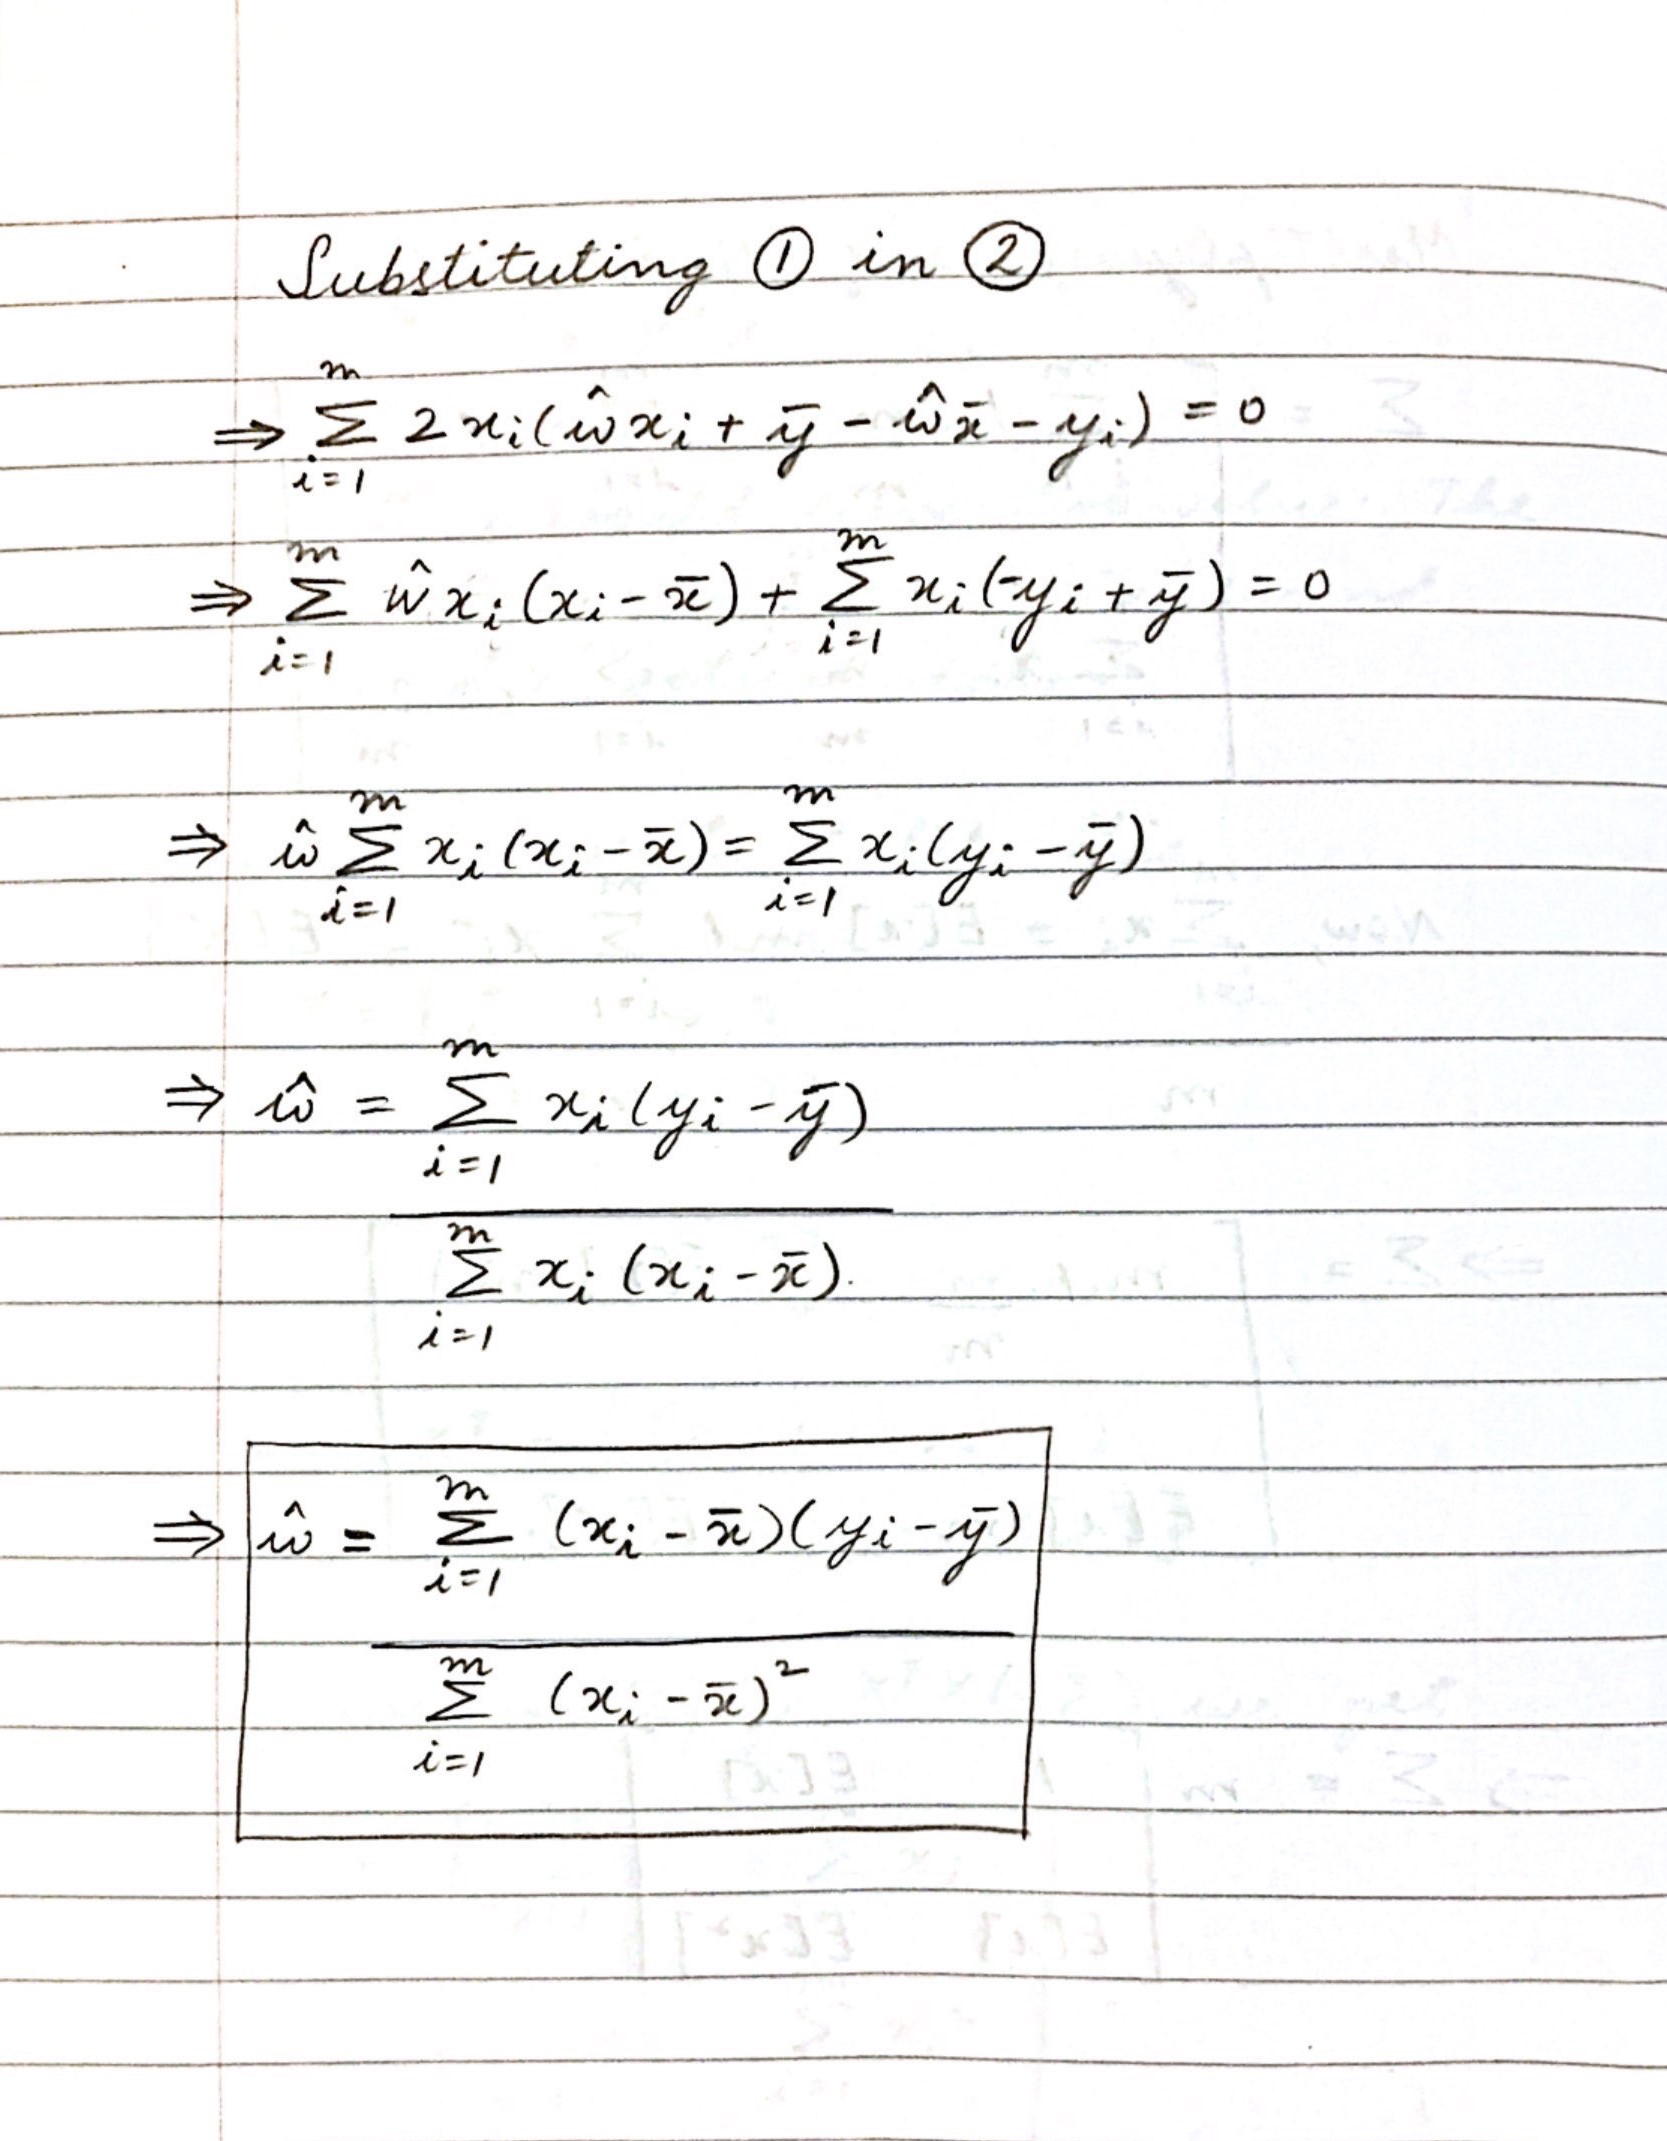 Substituting ① in ②
⇒ $\sum_{i=1}^{m} 2x_i(\hat{w}x_i + \bar{y} - \hat{w}\bar{x} - y_i) = 0$
⇒ $\sum_{i=1}^{m} \hat{w}x_i(x_i - \bar{x}) + \sum_{i=1}^{m} x_i(-y_i + \bar{y}) = 0$
⇒ $\hat{w}\sum_{i=1}^{m} x_i(x_i - \bar{x}) = \sum_{i=1}^{m} x_i(y_i - \bar{y})$
⇒ $\hat{w} = \frac{\sum_{i=1}^{m} x_i(y_i - \bar{y})}{\sum_{i=1}^{m} x_i(x_i - \bar{x}).}$
⇒ $\boxed{\hat{w} = \frac{\sum_{i=1}^{m} (x_i - \bar{x})(y_i - \bar{y})}{\sum_{i=1}^{m} (x_i - \bar{x})^2}}$